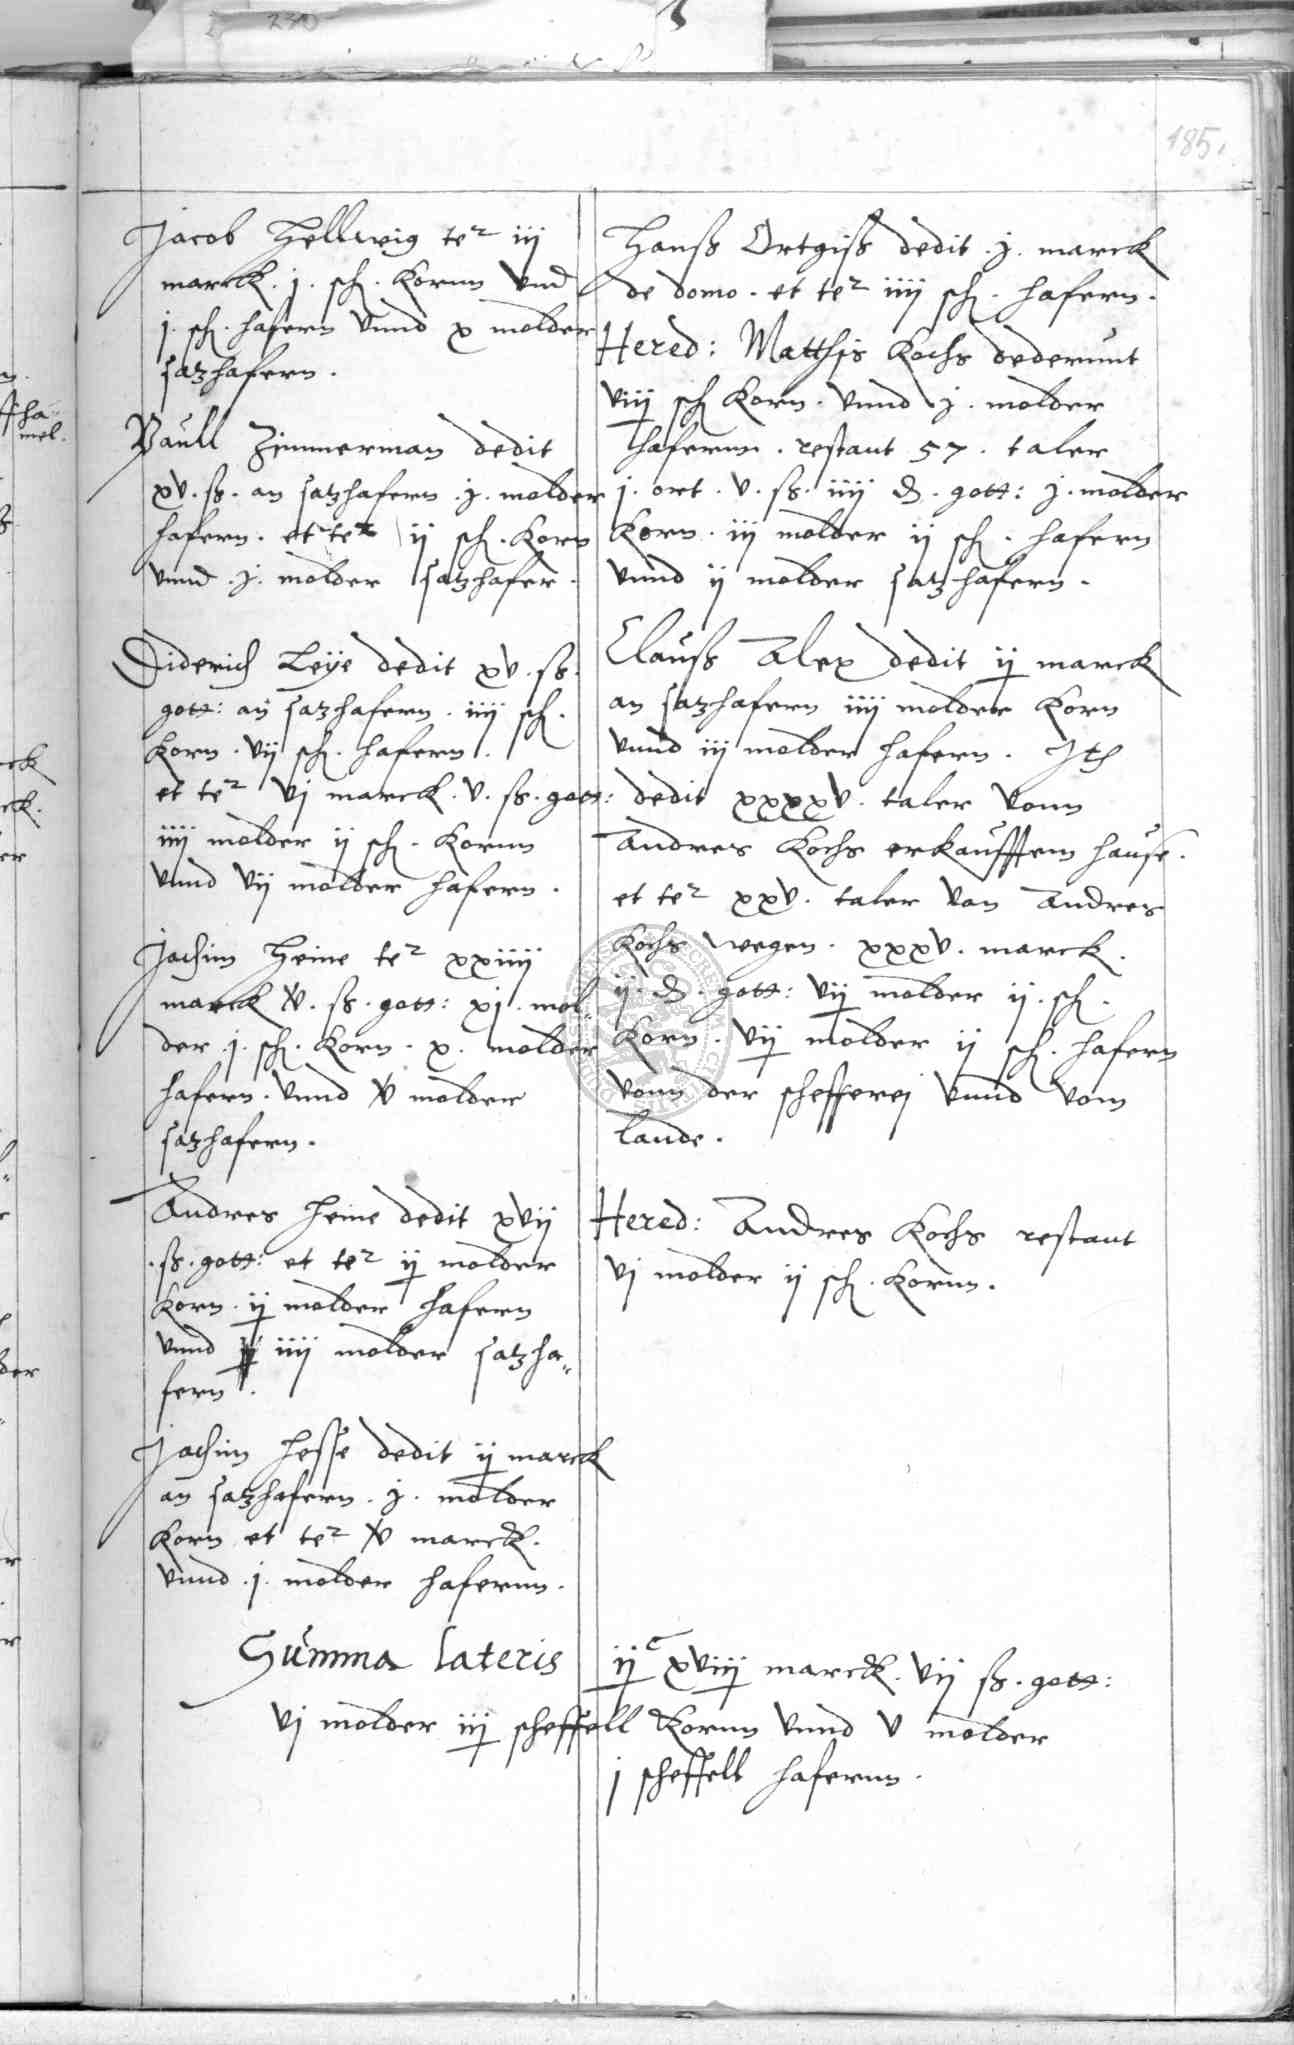 185.
Jacob Hellwig ter iij
marck. j. sch. Kornn vnd
j. sch. hafern vnnd x molder
satzhafern.
Paull Zimmerman dedit
xv. ß. an satzhafern. j. molder
hafern. et ter ij sch. Korn
vnnd. j. molder satzhafer.
Diderich Leÿe dedit xv. ß.
gott: an satzhafern. iiij sch.
Korn. vij sch. hafern.
et ter vj marck. v. ß. gott:
iiij molder ij sch. Kornn
vnnd vij molder hafern.
Jochim Heine ter xxiiij
marck v. ß. gott: xj. mol-
der. j. sch. Korn. x. molder
hafern. vnnd v molder
satzhafern.
Andres Heine dedit xvij
. ß. gott: et ter ij molder
Korn. ij molder hafern
vnnd iiij molder satzha-
fern.
Jochim Hesse dedit ij marck
an satzhafern. j. molder
Korn et ter v marck.
vnnd. j. molder hafernn.
Hanß Ortgiß dedit. j. marck
de domo. et ter iiij sch. hafern.
Hered: Matthis Kochs dederunt
viij sch Korn. vnnd j. molder
hafernn. restant 57. taler
j. ort. v. ß. iiij d. gott: j. molder
Korn. iij molder ij sch. hafern
vnnd ij molder satzhafern.
Clauß Alex dedit ij marck
an satzhafern iiij molder Korn
vnnd iij molder hafern. Jth
dedit xxxxv. taler vonn
Andres Kochs erkaufftem hause.
et ter xxv. taler von Andres
Kochs wegen. xxxv. marck.
ij. d. gott: vij molder ij. sch.
Korn. vij molder ij sch. hafern
vonn der schefferej vnnd vom
lande.
Hered: Andres Kochs restant
vj molder ij sch. Kornn.
Summa lateris ijc xviij marck. vij ß. gott:
vj molder iij scheffell Kornn vnnd v molder
j scheffell hafernn.